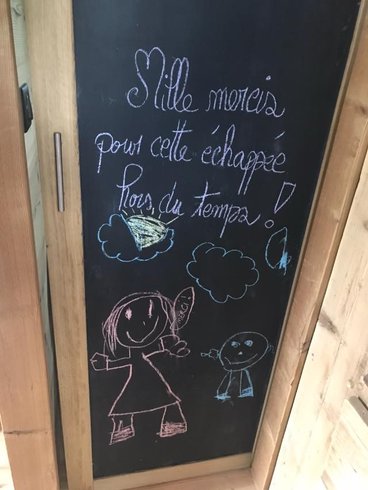 Mille mercis
pour cette échappée
hors du temps !